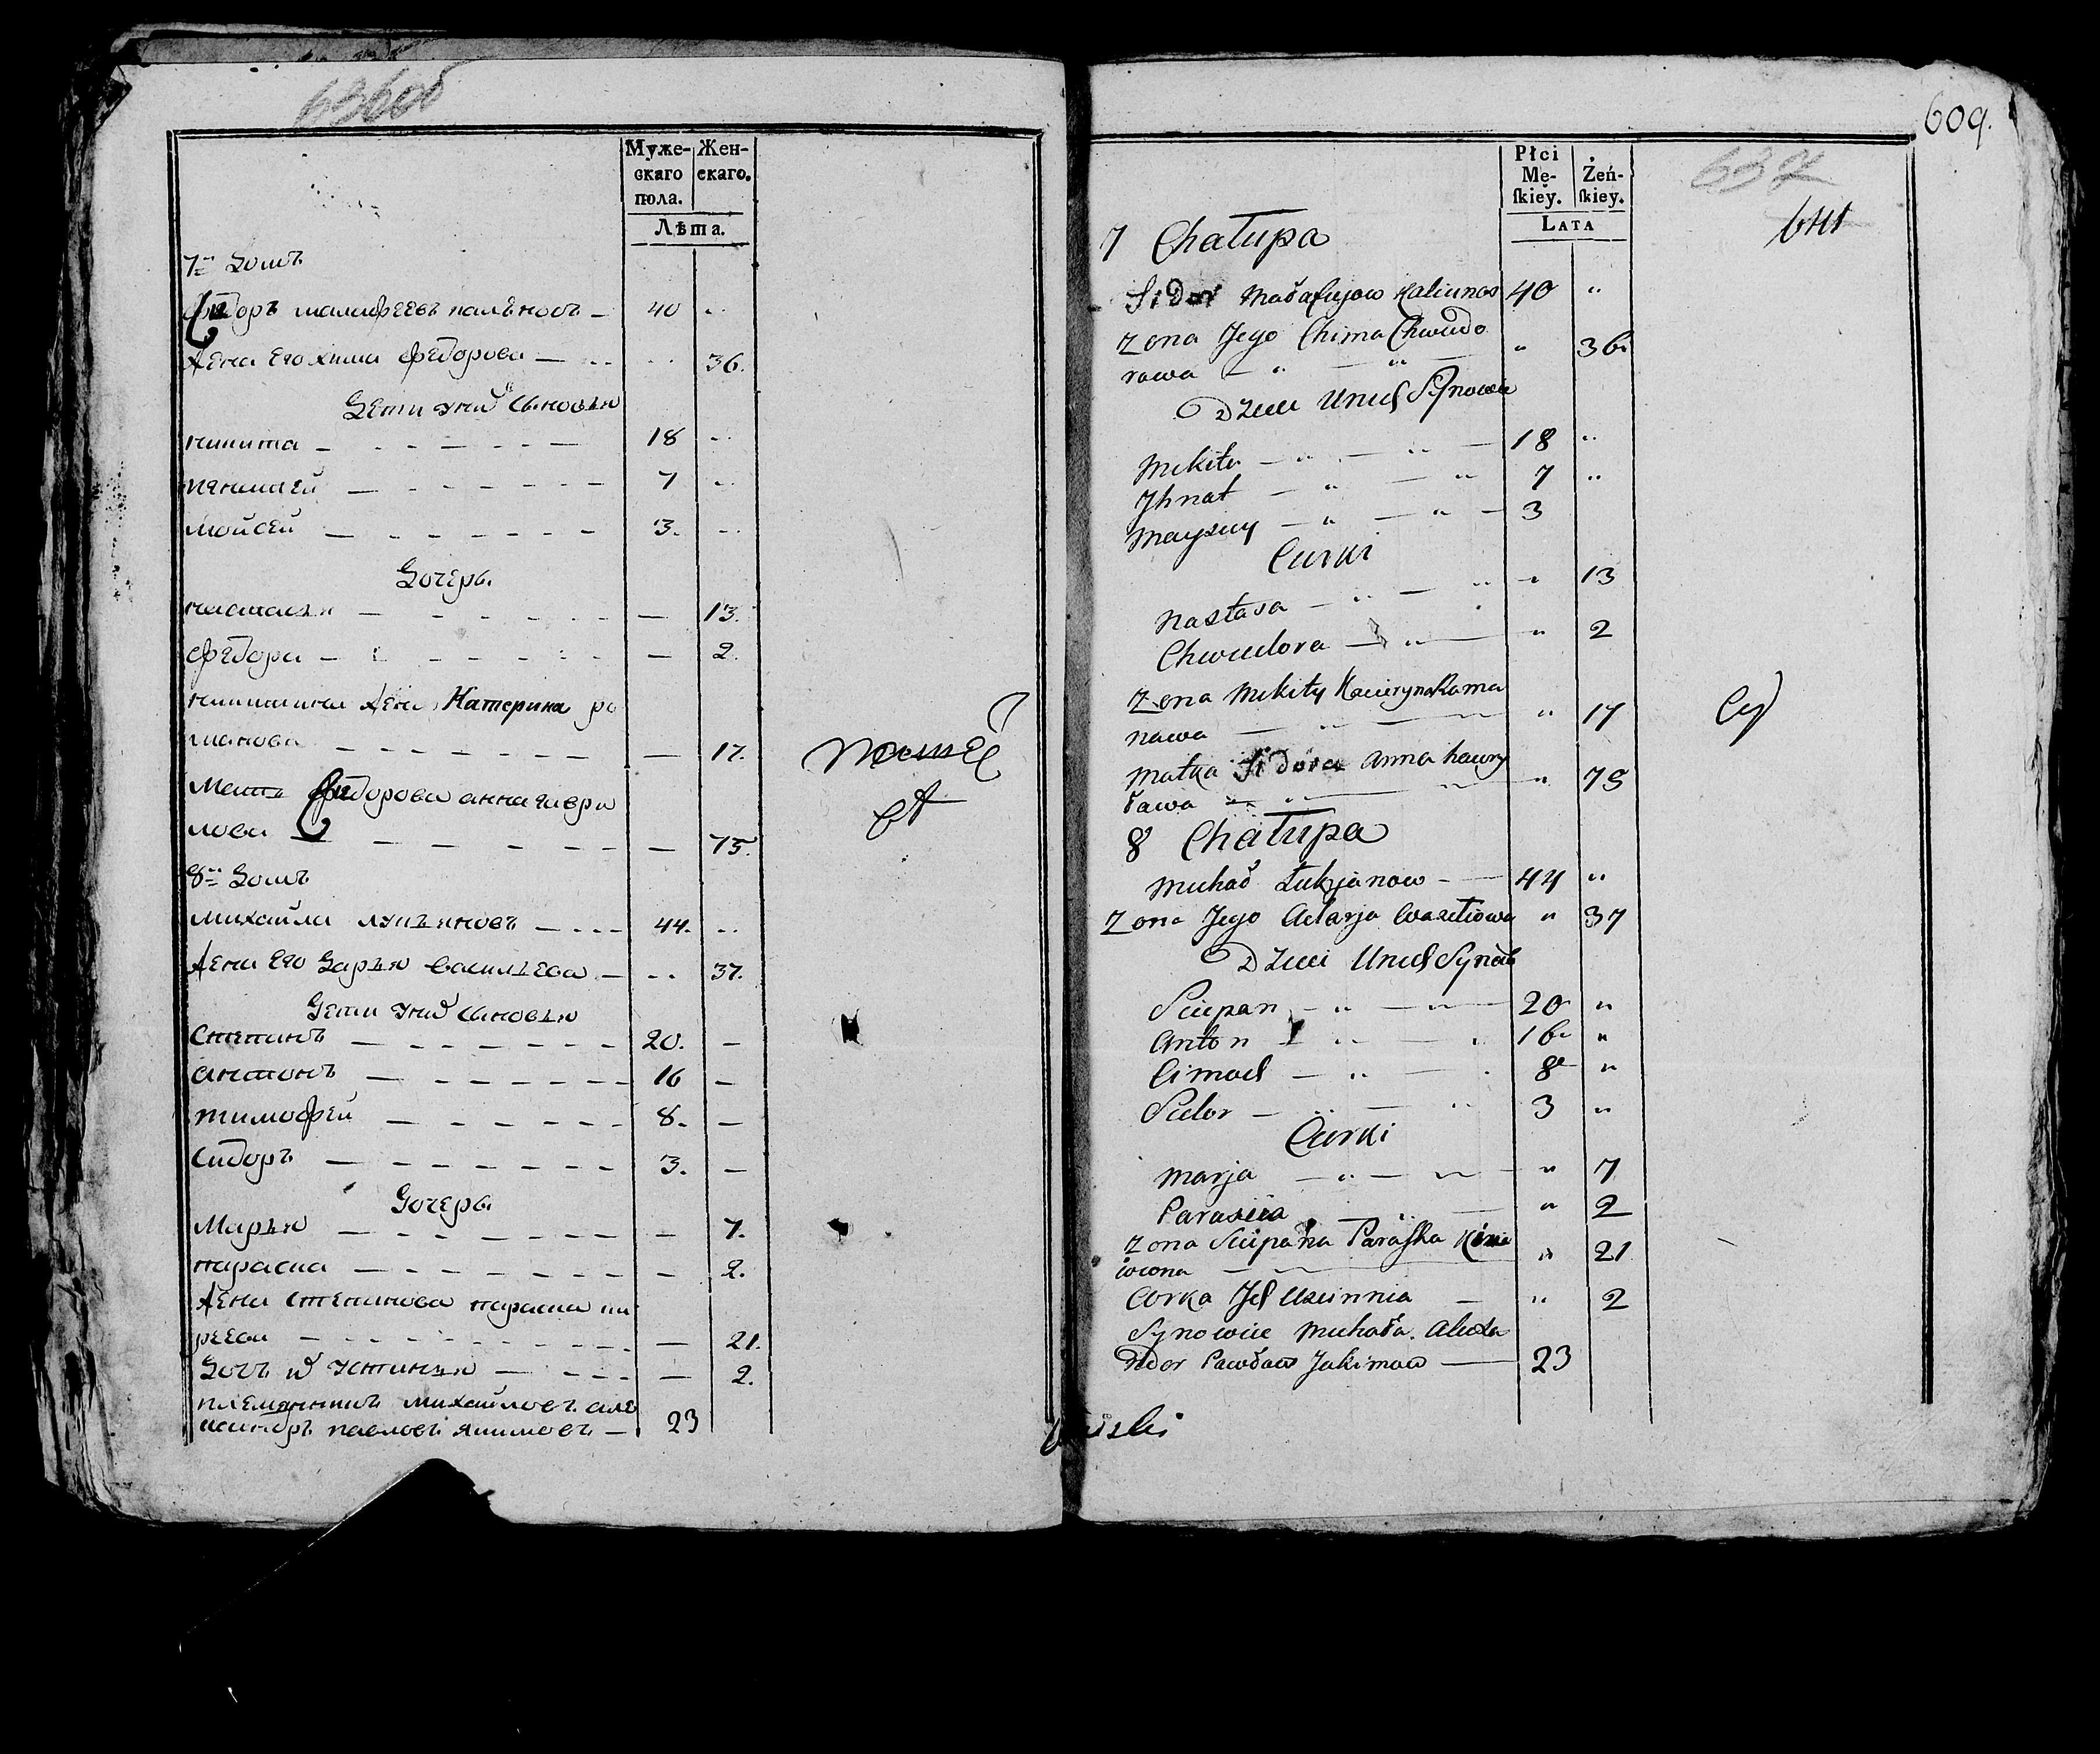 636об
Муже-
скаго
пола.
Жен-
скаго.
Лѣта.
7й Домъ
40
Жена Его Хима Федорова 36.
Дети у них Сыновья
Никита 18
7
Мойсей 3.
Дочеры
Настасья 13.
Федора 2.
Никитина Жена Катерина Ро
манова 17.
Мать Федорова Анна Гаври
лова 75.
8й Домъ
Михайла Лукьяновъ 44.
Жена Его Дарья Васильева 37.
Дети у них Сыновья
Степанъ 20.
Антонъ 16
Тимофей 8.
Сидоръ 3.
Дочеры
Марья 7.
Параска 2.
Жена Степанова Параска Ки
реева 21.
Дочь их Устинья 2.
Племянникъ Михайловъ Але
ксандръ Павловъ Якимовъ 23
609.
637
Płci
Mę-
skiey.
Żeń-
skiey.
Lata
7 Chałupa
Sidor 40
Zona Jego Chima Chwiedo
rowa 36
Dzieci Unich Synowie
Mikita 18
Ihnat 7
Mayzey 3
Curki
Nastasa 13
Chwiedora 2
Zona Mikity Kacieryna Rama
nowa 17
Matka Sidora Anna Hawry
łowa 75
8 Chałupa
Michał Łukjanow 44
Zona Jego Adarja Wasilowa 37
Dzieci Unich Synow
Sciepan 20
Anton 16
Cimoch 8
Sidor 3
Curki
Marja 7
Parasia 2
Zona Sciepana Paraska 21
Corka Jch Uscinnia 2
Synowiec Michała Alexa
nder Pawłow Jakimow 23